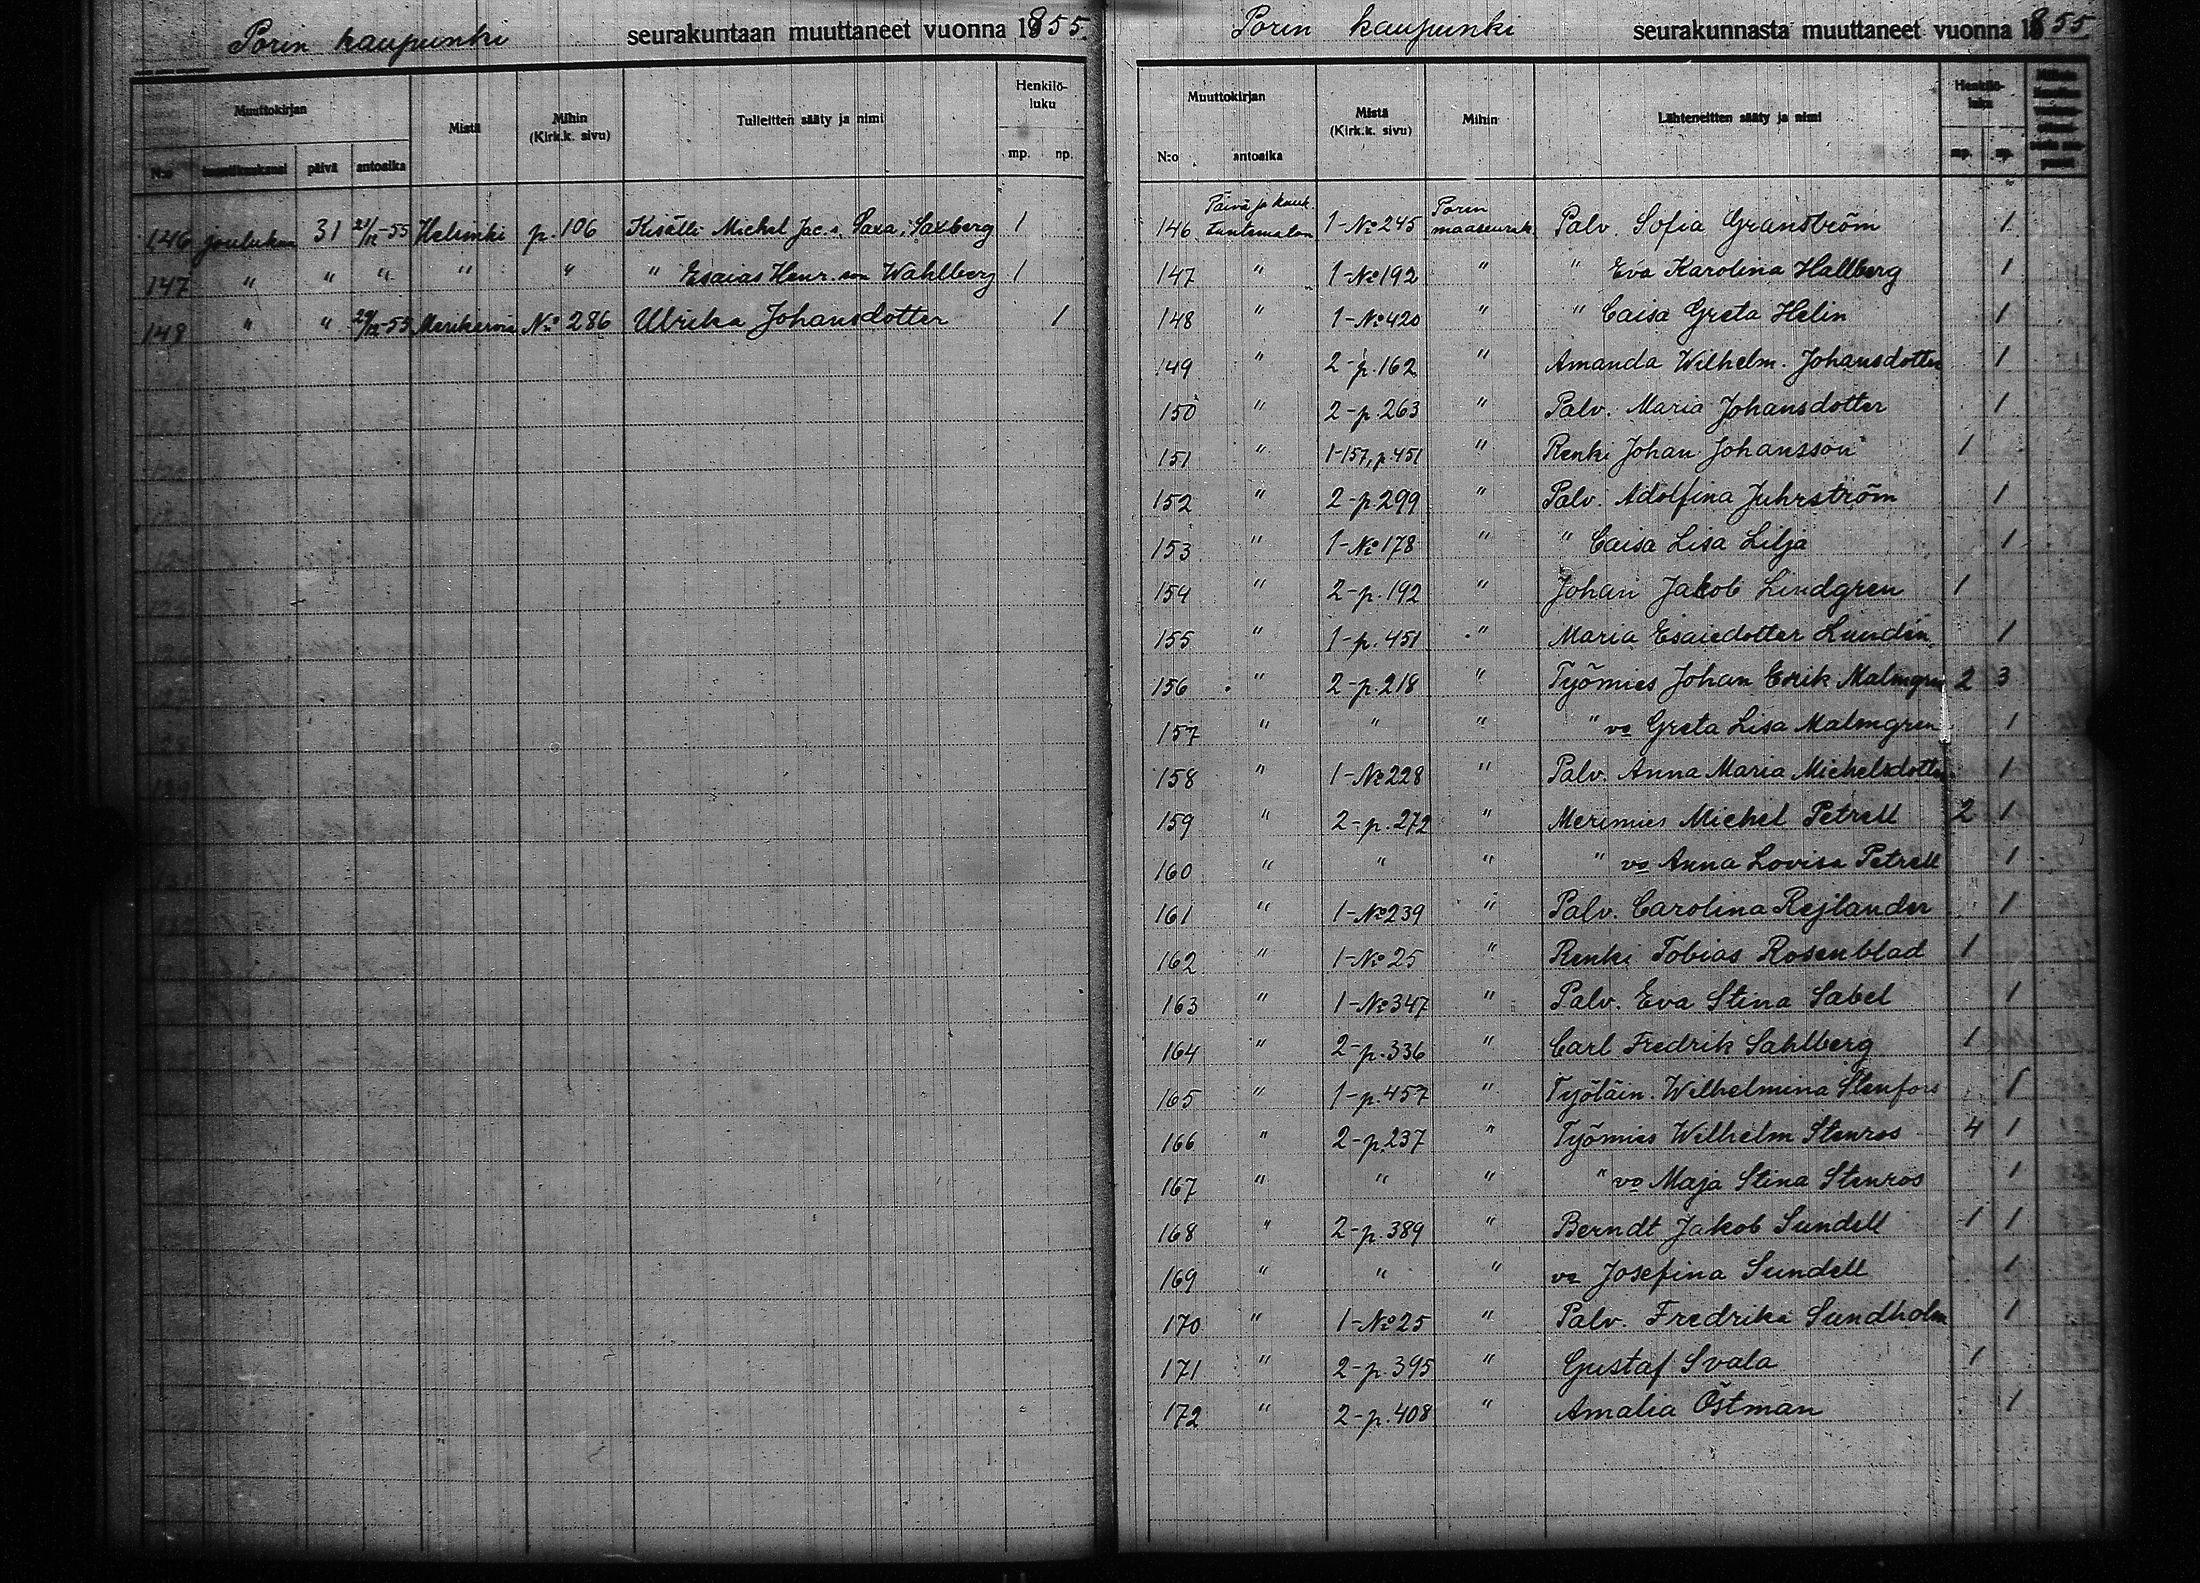 Porin kaupunki seurakuntaan muuttaneet vuonna 1855.
Muuttokirjan Mistä Mihin (Kirk.k. sivu) Tulleitten sääty ja nimi Henkilö-luku
N:o päivä antoaika mp. np.
146 joulukuu 31 21/12-55 Helsinki p. 106 Kisälli Michel Jac.s. Saxa, Saxberg 1
147 " " " " " " Esaias Henr. son Wahlberg 1
148 " " 29/12-55 Merikarvia No 286 Ulrika Johansdotter 1
Porin kaupunki seurakunnasta muuttaneet vuonna 1855
Muuttokirjan Mistä (Kirk.k. sivu) Mihin Lähteneitten sääty ja nimi Henkilö-luku
N:o antoaika mp. np.
146 Päivä ja kuuk. tuntematon 1-No 245 Porin maaseurak. Palv. Sofia Granström 1
147 " 1-No 192 " " Eva Karolina Hallberg 1
148 " 1-No 420 " " Caisa Greta Helin 1
149 " 2-p.162 " Amanda Wilhelm. Johansdotter 1
150 " 2-p.263 " Palv. Maria Johansdotter 1
151 " 1-157, p.451 " Renki Johan Johansson 1
152 " 2-p.299 " Palv. Adolfina Juhrström 1
153 " 1-No 178 " " Caisa Lisa Lilja 1
154 " 2-p.192 " Johan Jakob Lindgren 1
155 " 1-p.451 " Maria Esaiedotter Lundén 1
156 " 2-p.218 " Työmies Johan Erik Malmgren 2 3
157 " " " " vo Greta Lisa Malmgren 1
158 " 1-No 228 " Palv. Anna Maria Michelsdotter 1
159 " 2-p.272 " Merimies Michel Petrell 2 1
160 " " " " vo Anna Lovisa Petrell 1
161 " 1-No 239 " Palv. Carolina Rejlander 1
162 " 1-No 25 " Renki Tobias Rosenblad 1
163 " 1-No 347 " Palv. Eva Stina Sabel 1
164 " 2-p.336 " Carl Fredrik Sahlberg 1
165 " 1-p.457 " Työläin. Wilhelmina Stenfors 1
166 " 2-p.237 " Työmies Wilhelm Stenros 4 1
167 " " " " vo Maja Stina Stenros 1
168 " 2-p.389 " Berndt Jakob Sundell 1 1
169 " " " vo Josefina Sundell 1
170 " 1-No 25 " Palv. Fredrika Sundholm 1
171 " 2-p.395 " Gustaf Svala 1
172 " 2-p.408 " Amalia Östman 1